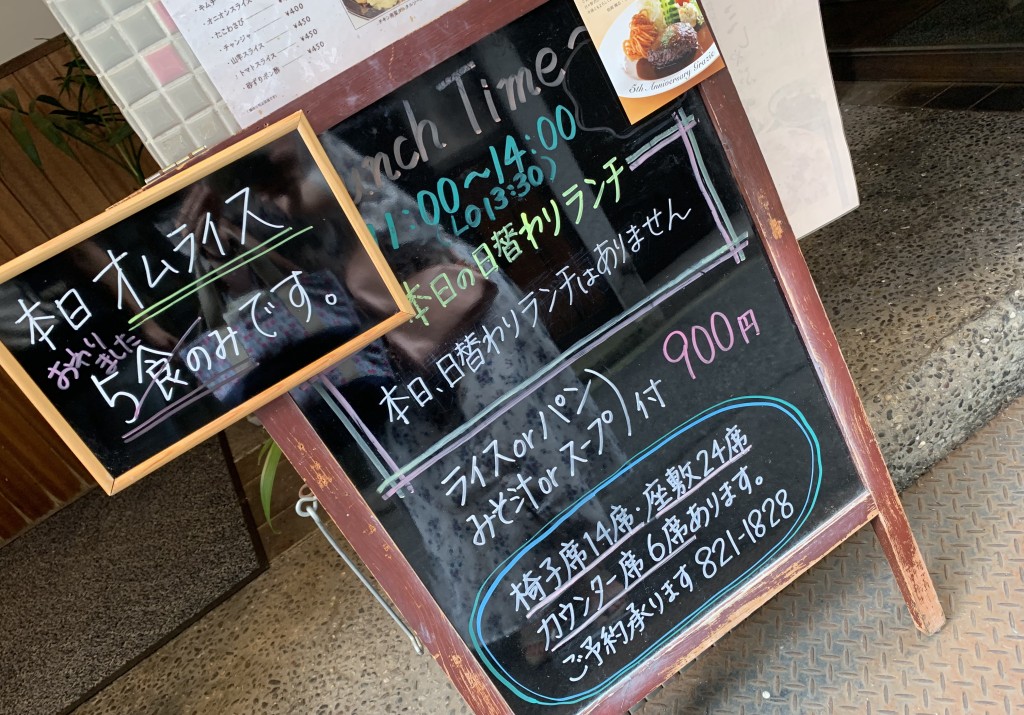 ・オニオンスライス ¥400
・たこわさび ¥400
・チャンジャ ¥450
・山芋スライス ¥400
・トマトスライス ¥450
・砂ずりポン酢 ¥450
5th Anniversary Grazie
本日 オムライス
おわりました
5食のみです。
Lunch Time
11:00~14:00
(LO13:30)
本日の日替わりランチ
本日、日替わりランチはありません
ライス or パン
みそ汁 or スープ) 付
900円
椅子席14席・座敷24席
カウンター席6席あります。
ご予約承ります 821-1828